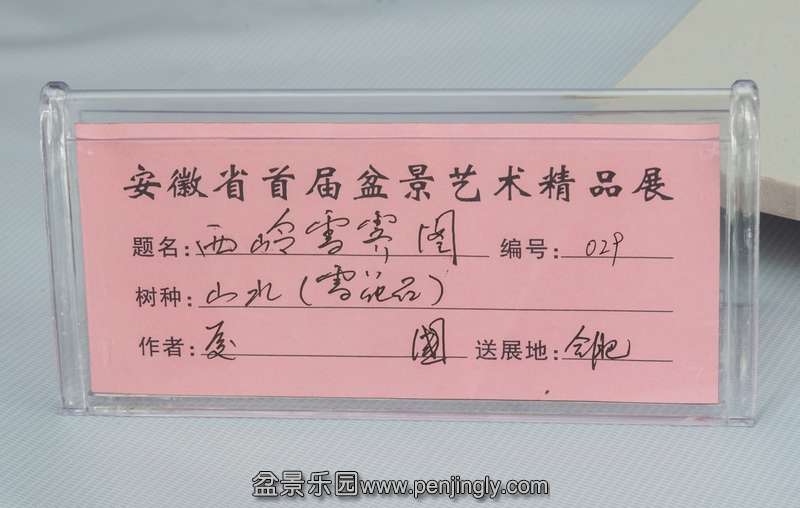 安徽省首届盆景艺术精品展
题名:西岭雪霁图 编号:029
树种:山水(雪花石)
作者:夏 國 送展地:合肥
盆景乐园www.penjingly.com